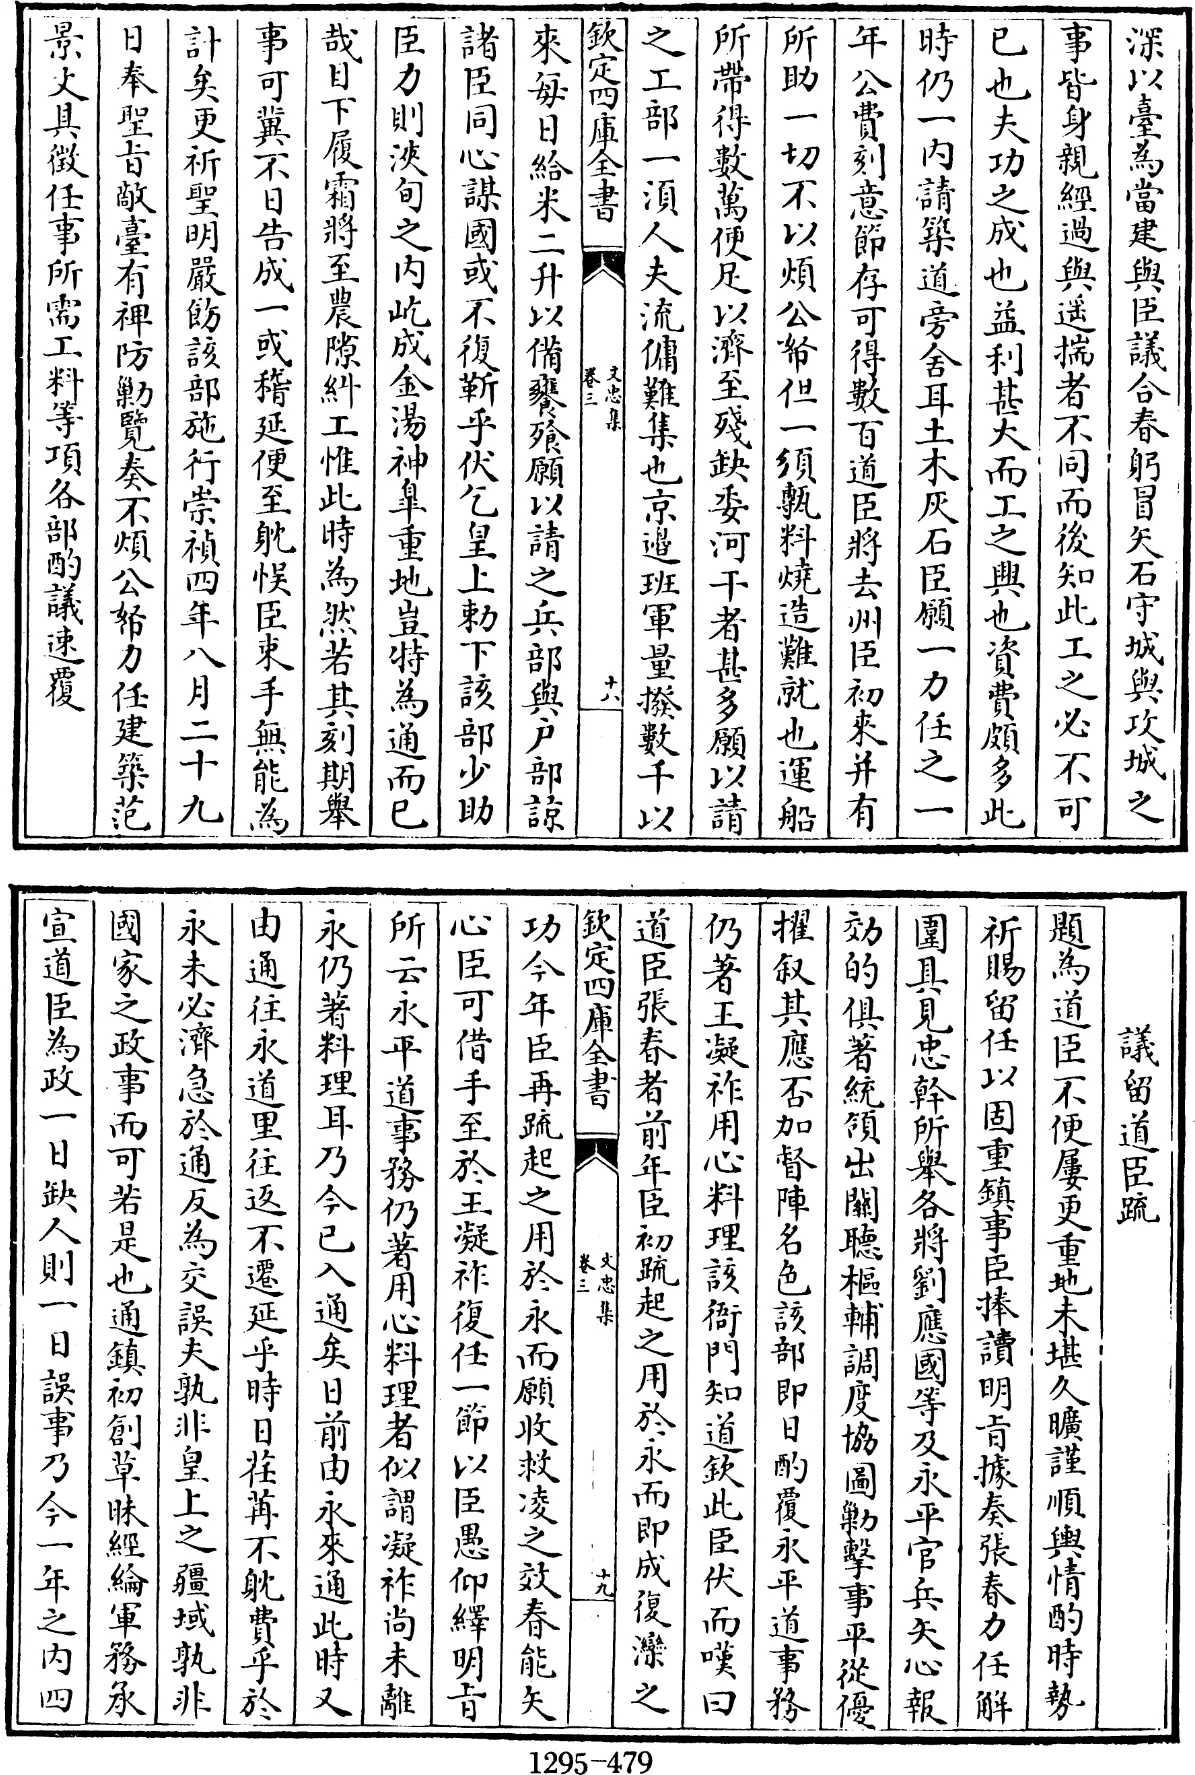 深以臺為當建與臣議合春躬冒矢石守城與攻城之
事皆身親經過與遥揣者不同而後知此工之必不可
已也夫功之成也益利甚大而工之興也資費頗多此
時仍一内請築道旁舍耳土木灰石臣願一力任之一
年公費刻意節存可得數百道臣將去州臣初來并有
所助一切不以煩公帑但一須甎料燒造難就也運船
所帶得數萬便足以濟至殘缺委河干者甚多願以請
之工部一須人夫流傭難集也京邉班軍量撥數千以
欽定四庫全書
文忠集
卷三
十八
來每日給米二升以備饔飱願以請之兵部與户部諒
諸臣同心謀國或不復靳乎伏乞皇上勅下該部少助
臣力則浹旬之内屹成金湯神臯重地豈特為通而已
哉目下履霜將至農隙糾工惟此時為然若其刻期舉
事可冀不日告成一或稽延便至躭悞臣束手無能為
計矣更祈聖明嚴飭該部施行崇禎四年八月二十九
日奉聖旨敵臺有裨防勦覽奏不煩公帑力任建築范
景文具徴任事所需工料等項各部酌議速覆
議留道臣疏
題為道臣不便屢更重地未堪久曠謹順輿情酌時勢
祈賜留任以固重鎮事臣捧讀明旨據奏張春力任解
圍具見忠幹所舉各將劉應國等及永平官兵矢心報
効的俱著統領出關聽樞輔調度協圖勦擊事平從優
擢叙其應否加督陣名色該部即日酌覆永平道事務
仍著王凝祚用心料理該衙門知道欽此臣伏而嘆曰
道臣張春者前年臣初疏起之用於永而即成復灤之
欽定四庫全書
文忠集
卷三
十九
功今年臣再疏起之用於永而願收救凌之效春能矢
心臣可借手至於王凝祚復任一節以臣愚仰繹明旨
所云永平道事務仍著用心料理者似謂凝祚尚未離
永仍著料理耳乃今已入通矣日前由永來通此時又
由通往永道里往返不遷延乎時日荏苒不躭費乎於
永未必濟急於通反為交誤夫孰非皇上之疆域孰非
國家之政事而可若是也通鎮初創草昧經綸軍務承
宣道臣為政一日缺人則一日誤事乃今一年之内四
1295-479